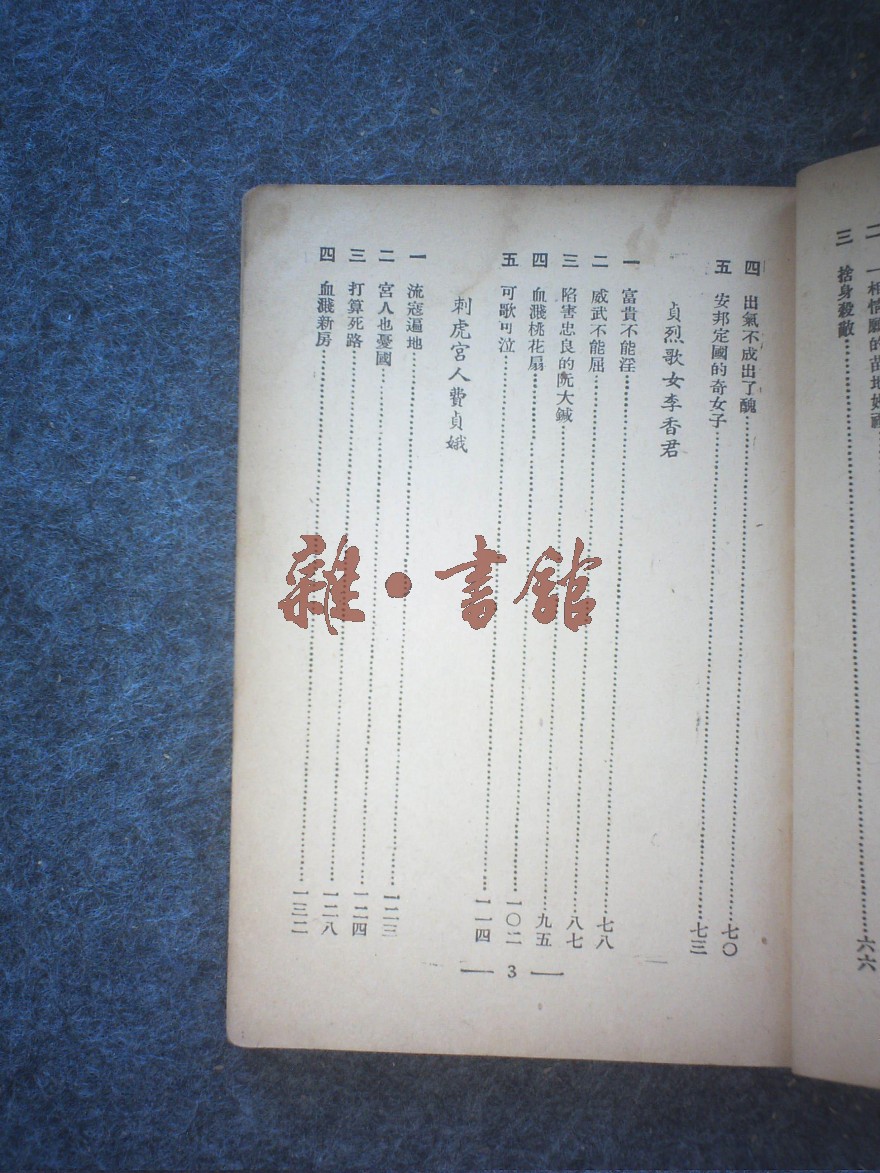 二 一相情願的苗地
三 捨身殺敵……六六
四 出氣不成出了醜……七〇
五 安邦定國的奇女子……七三
貞烈歌女李香君
一 富貴不能淫……七八
二 威武不能屈……八七
三 陷害忠良的阮大鋮……九五
四 血濺桃花扇……一〇二
五 可歌可泣……一一四
刺虎宮人費貞娥
一 流寇遍地……一二三
二 宮人也憂國……一二四
三 打算死路……一二八
四 血濺新房……一三二
— 3 —
雜·書館